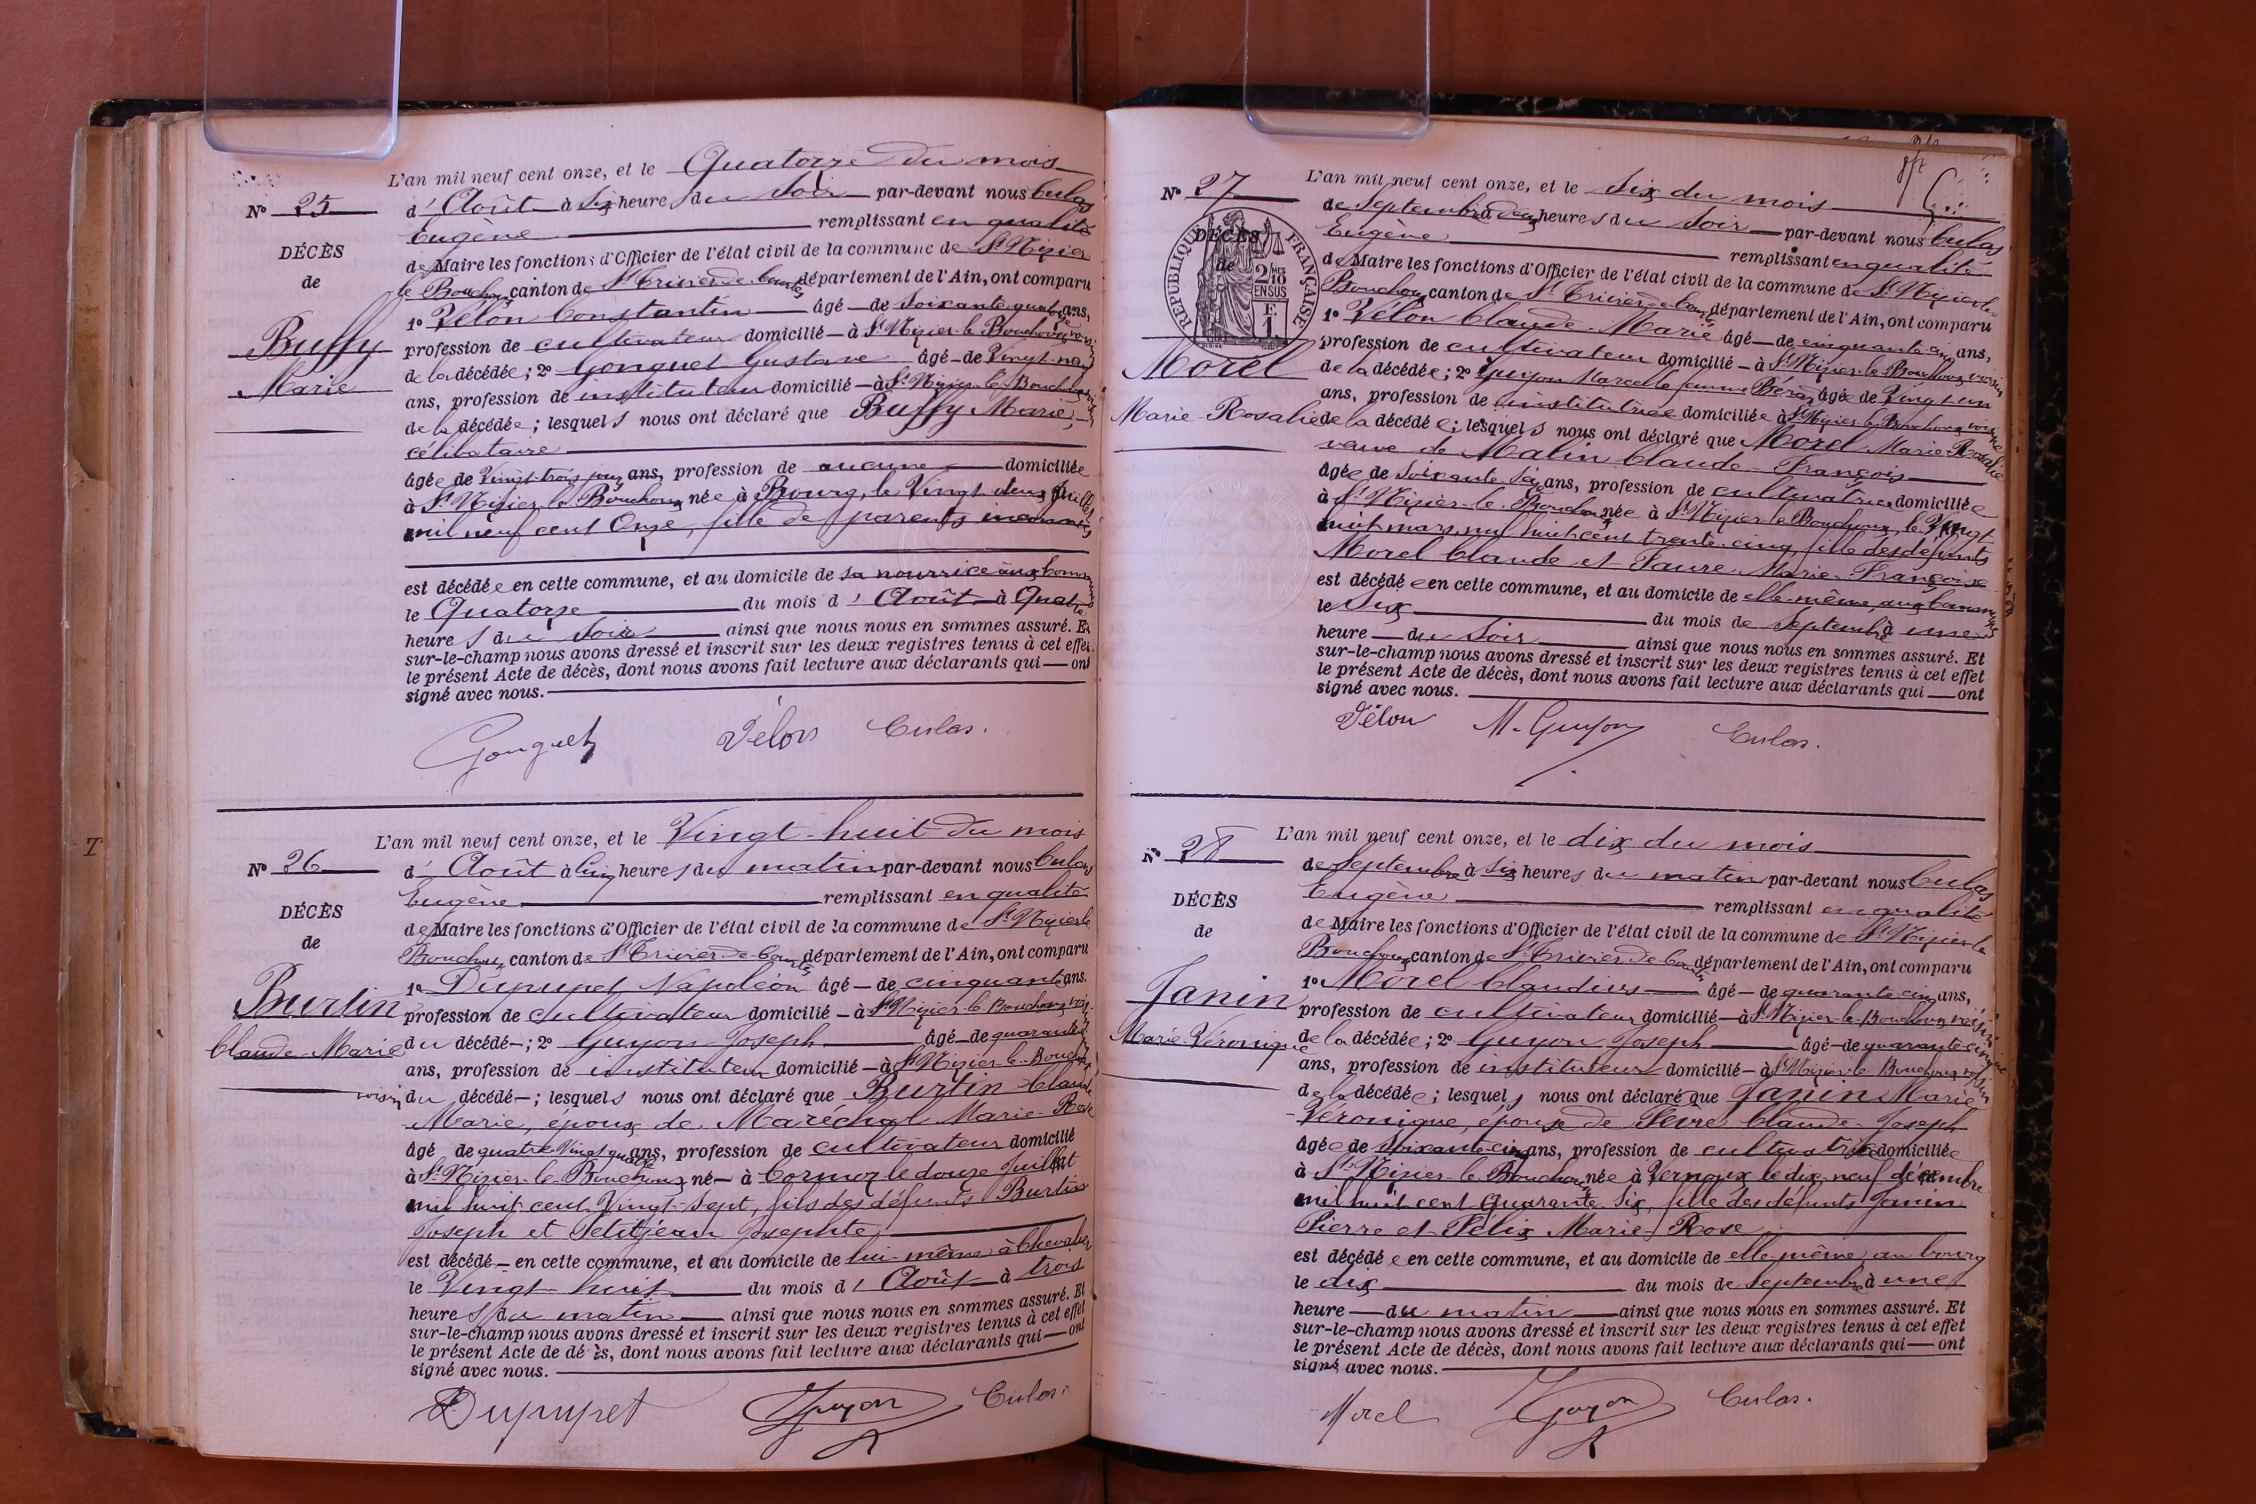 L'an mil neuf cent onze, et le Quatorze du mois
N° 25
d'Août à Six heures du Soir par-devant nous Culas
Eugène remplissant en qualité
DÉCÈS
de Maire les fonctions d'Officier de l'état civil de la commune de St Nizier
de
le Bouchoux canton de St Trivier-de-Courtes département de l'Ain, ont comparu
1° Vélon Constantin âgé de Soixante-quatre ans,
Buffy
profession de cultivateur domicilié à St Nizier-le-Bouchoux voisin
de la décédée; 2° Gonguet Gustave âgé de Vingt-neuf
Marie
ans, profession de instituteur domicilié à St Nizier-le-Bouchoux voisin
de la décédée; lesquels nous ont déclaré que Buffy Marie,
célibataire
âgée de Vingt-trois jours ans, profession de aucune domiciliée
à St Nizier-le-Bouchoux née à Bourg, le Vingt-deux Juillet
mil neuf cent Onze, fille de parents inconnus
est décédée en cette commune, et au domicile de sa nourrice aux Communes
le Quatorze du mois d'Août à Quatre
heures du Soir ainsi que nous nous en sommes assuré. Et
sur-le-champ nous avons dressé et inscrit sur les deux registres tenus à cet effet
le présent Acte de décès, dont nous avons fait lecture aux déclarants qui ont
signé avec nous.
Gonguet Vélon Culas.
L'an mil neuf cent onze, et le Vingt-huit du mois
N° 26
d'Août à Cinq heures du matin par-devant nous Culas
Eugène remplissant en qualité
DÉCÈS
de Maire les fonctions d'Officier de l'état civil de la commune de St Nizier-le
de
Bouchoux canton de St Trivier-de-Courtes département de l'Ain, ont comparu
1° Dupupet Napoléon âgé de cinquante ans,
Burtin
profession de cultivateur domicilié à St Nizier-le-Bouchoux voisin
du décédé; 2° Guyon Joseph âgé de quarante-cinq
Claude-Marie
ans, profession de instituteur domicilié à St Nizier-le-Bouchoux
voisin du décédé; lesquels nous ont déclaré que Burtin Claude
Marie, époux de Maréchal Marie-Rose
âgé de quatre Vingt quatre ans, profession de cultivateur domicilié
à St Nizier-le-Bouchoux né à Cormoz le douze Juillet
mil huit cent Vingt-Sept, fils des défunts Burtin
Joseph et Petitjean Josephte,
est décédé en cette commune, et au domicile de lui-même à Chevalier
le Vingt-huit du mois d'Août à trois
heures du matin ainsi que nous nous en sommes assuré. Et
sur-le-champ nous avons dressé et inscrit sur les deux registres tenus à cet effet
le présent Acte de décès, dont nous avons fait lecture aux déclarants qui ont
signé avec nous.
Dupupet Guyon Culas.
L'an mil neuf cent onze, et le Six du mois
N° 27
de Septembre à deux heures du Soir par-devant nous Culas
RÉPUBLIQUE FRANÇAISE
2/10 EN SUS
F. 1
DÉCÈS
Eugène remplissant en qualité
de
de Maire les fonctions d'Officier de l'état civil de la commune de St Nizier-le
Bouchoux canton de St Trivier-de-Courtes département de l'Ain, ont comparu
1° Vélon Claude-Marie âgé de cinquante-cinq ans,
Morel
profession de cultivateur domicilié à St Nizier-le-Bouchoux voisin
de la décédée; 2° Guyon Marcelle femme Béraz âgée de Vingt-un
ans, profession de institutrice domiciliée à St Nizier-le-Bouchoux voisine
Marie-Rosalie
de la décédée; lesquels nous ont déclaré que Morel Marie-Rosalie
veuve de Malin Claude-François
âgée de Soixante-Seize ans, profession de cultivatrice domiciliée
à St Nizier-le-Bouchoux née à St Nizier-le-Bouchoux, le Vingt-
huit mars mil huit cent trente-cinq, fille des défunts
Morel Claude et Faure Marie-Françoise
est décédée en cette commune, et au domicile de elle-même, aux Communes
le Six du mois de Septembre à une
heure du Soir ainsi que nous nous en sommes assuré. Et
sur-le-champ nous avons dressé et inscrit sur les deux registres tenus à cet effet
le présent Acte de décès, dont nous avons fait lecture aux déclarants qui ont
signé avec nous.
Vélon M. Guyon Culas.
L'an mil neuf cent onze, et le dix du mois
N° 28
de Septembre à Six heures du matin par-devant nous Culas
Eugène remplissant en qualité
DÉCÈS
de Maire les fonctions d'Officier de l'état civil de la commune de St Nizier-le
de
Bouchoux canton de St Trivier-de-Courtes département de l'Ain, ont comparu
1° Morel Claudius âgé de quarante-cinq ans,
Janin
profession de cultivateur domicilié à St Nizier-le-Bouchoux voisin
Marie-Véronique
de la décédée; 2° Guyon Joseph âgé de quarante-cinq
ans, profession de instituteur domicilié à St Nizier-le-Bouchoux voisin
de la décédée; lesquels nous ont déclaré que Janin Marie
Véronique, épouse de Claude-Joseph
âgée de Soixante-cinq ans, profession de cultivatrice domiciliée
à St Nizier-le-Bouchoux née à Vernoux le dix-neuf décembre
mil huit cent Quarante-Six, fille des défunts Janin
Pierre et Félix Marie-Rose
est décédée en cette commune, et au domicile de elle-même, au bourg
le dix du mois de Septembre à une
heure du matin ainsi que nous nous en sommes assuré. Et
sur-le-champ nous avons dressé et inscrit sur les deux registres tenus à cet effet
le présent Acte de décès, dont nous avons fait lecture aux déclarants qui ont
signé avec nous.
Morel Guyon Culas.